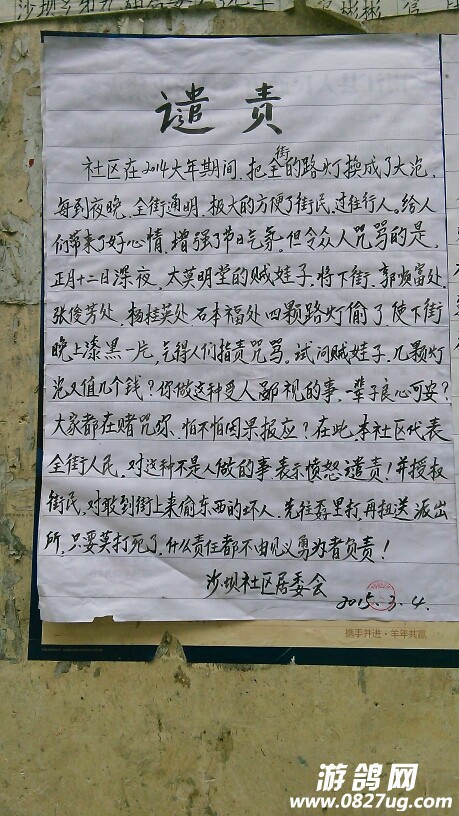 谴责
社区在2014大年期间,把全街的路灯换成了大泡,
每到夜晚,全街通明,极大的方便了街民,过往行人。给人
们带来了好心情,增强了节日气象。但令众人咒骂的是,
正月十二日深夜,太莫明堂的贼娃子,将下街,郭顺富处,
张俊芳处,杨桂英处,石本福处四颗路灯偷了,使下街
晚上漆黑一片,气得人们指责咒骂。试问贼娃子,几颗灯
泡又值几个钱?你做这种受人鄙视的事,一辈子良心可安?
大家都在赌咒你,怕不怕因果报应?在此,本社区代表
全街人民,对这种不是人做的事,表示愤怒谴责!并授权
街民,对敢到街上来偷东西的坏人,先往孬里打,再扭送派出
所,只要莫打死了,什么责任都不由见义勇为者负责!
沙坝社区居委会
2015.3.4.
携手并进·羊年共赢
游鸽网
www.0827ug.com